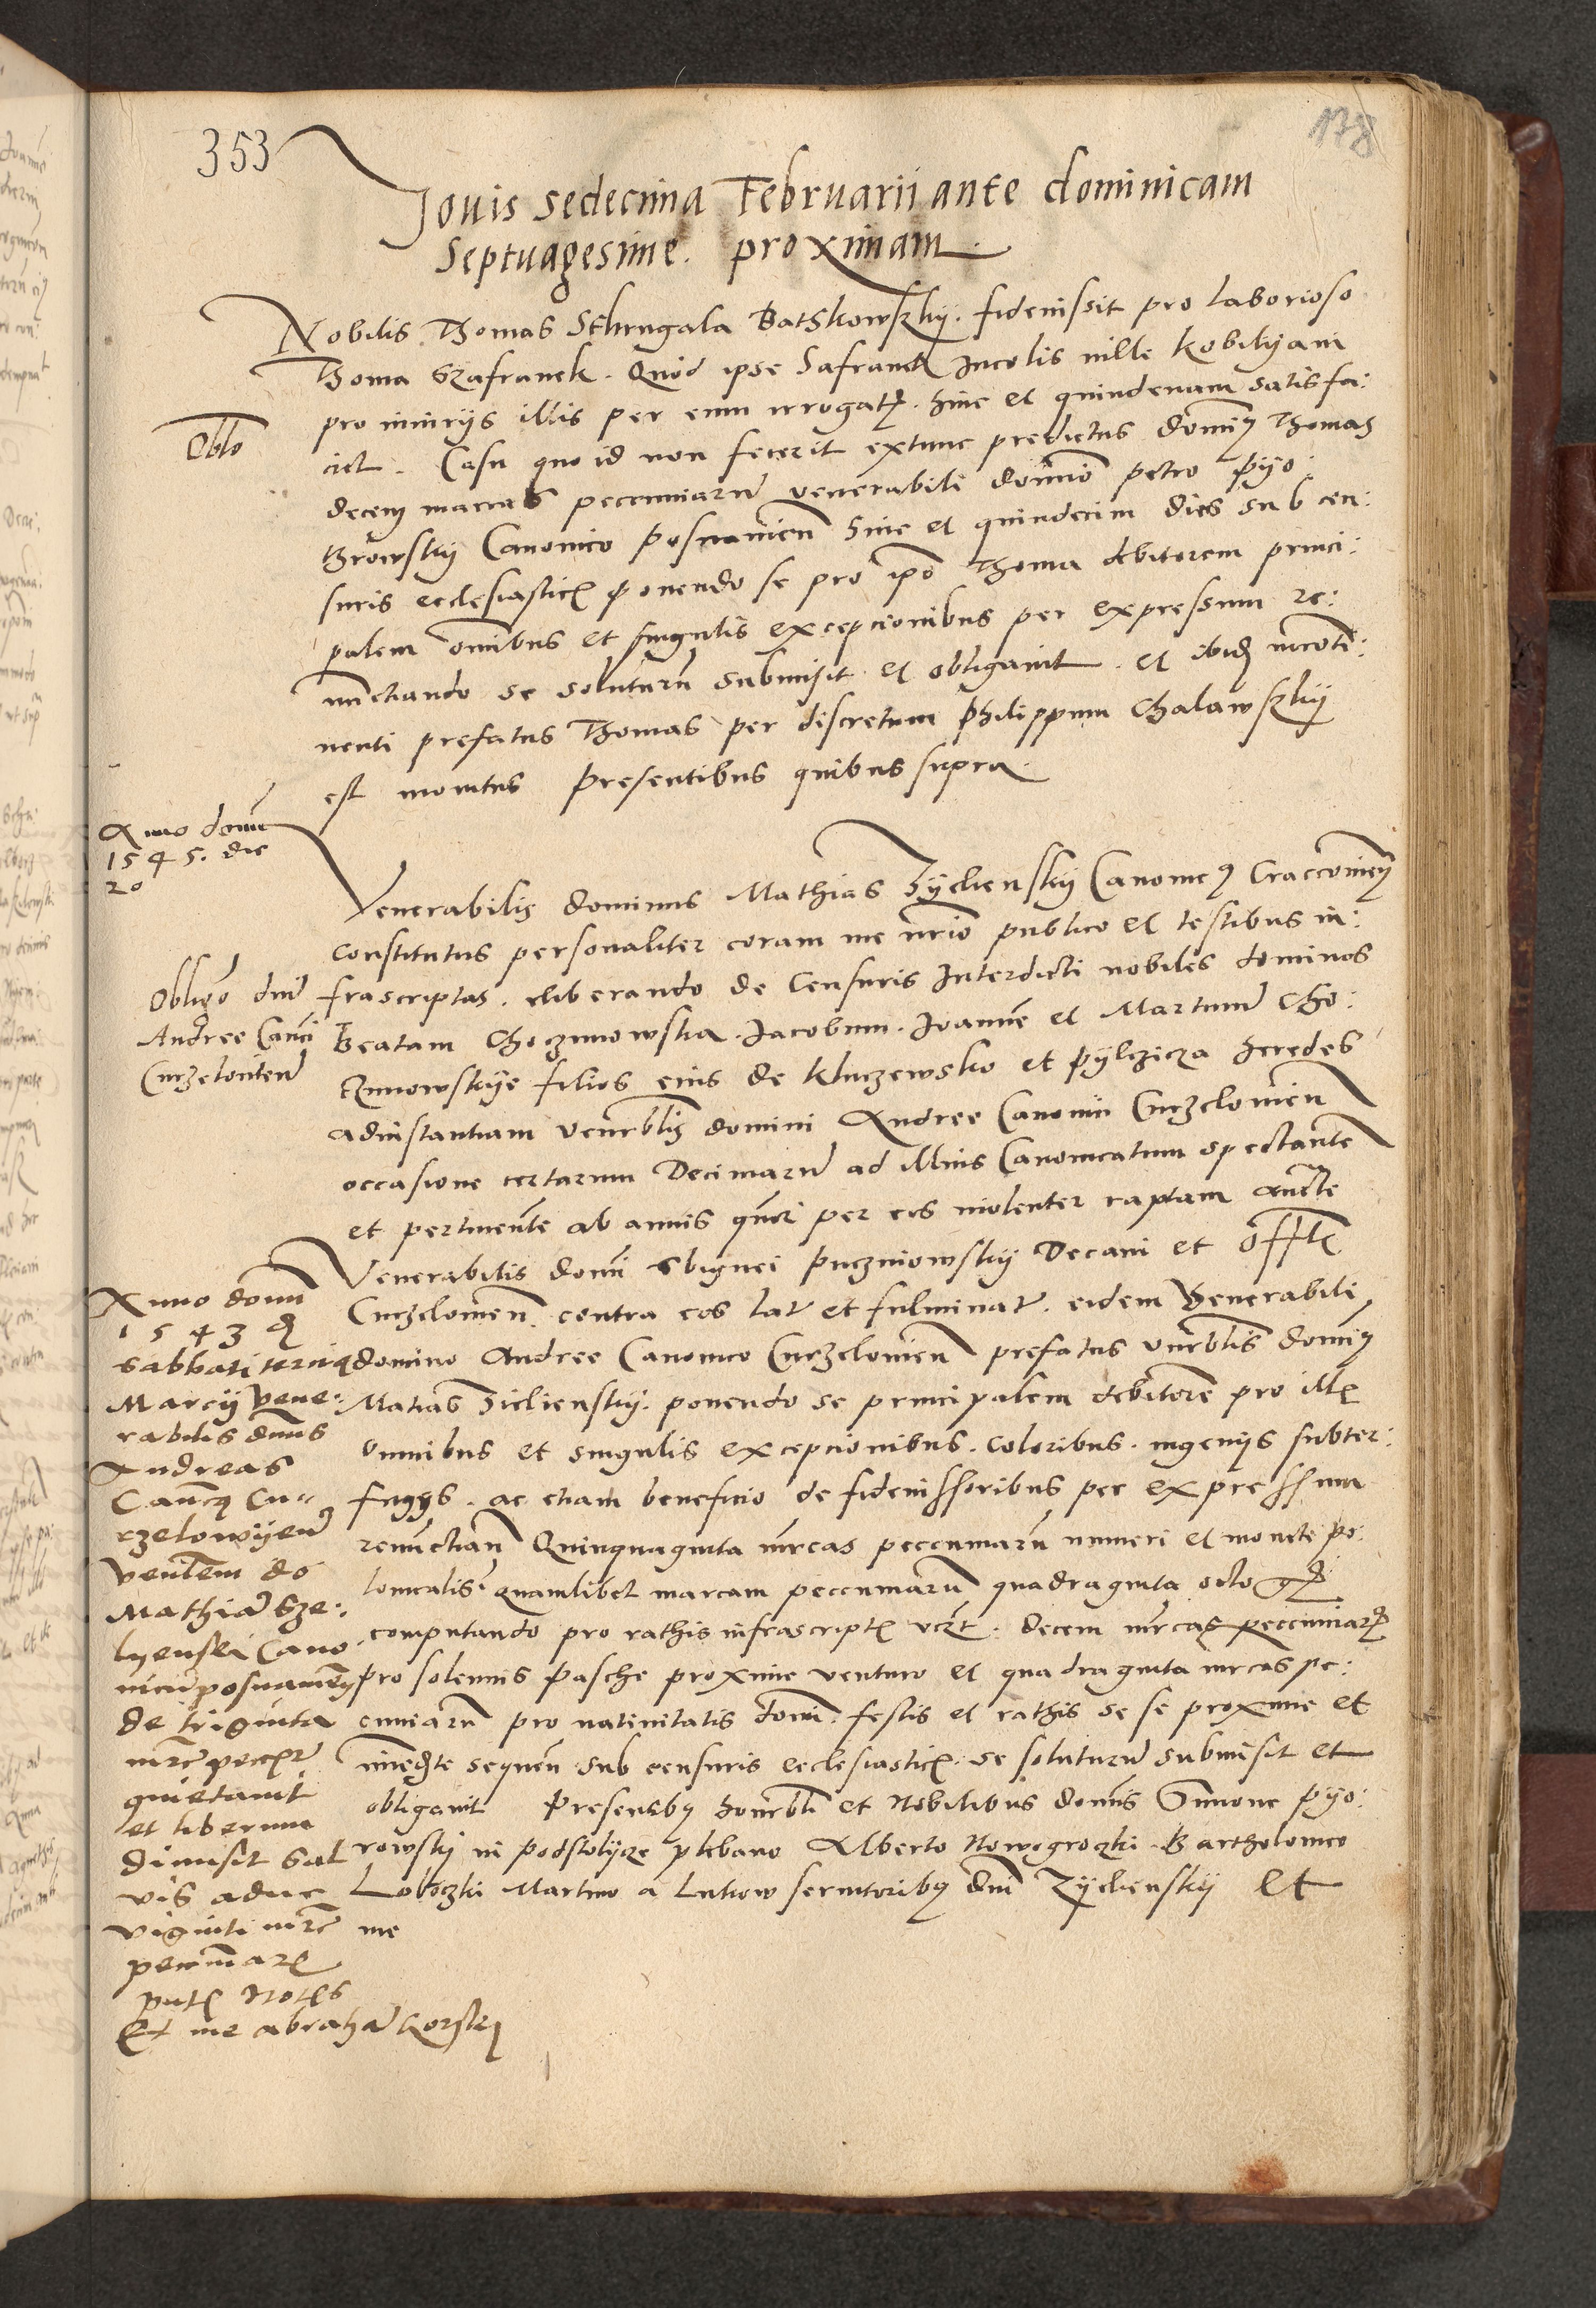 353
178
Jovis sedecima Februarii ante dominicam
Septuagesime proximam
Nobilis Thomas Sthrugala Batskowszky fideiussit pro laborioso
Thoma Szafranek. Quod ipse Safranek Incolis ville Kobilyani
pro iniuriis illis per eum irrogatis hinc et quindenam satisfa:
ciet. Casu quo id non fecerit extunc predictus domin9 Thomas
Oblo
decem marcas pecuniarum venerabili domino petro pyo:
throwsky Canonico posnanien hinc et quindecim dies sub cen:
suris ecclesiasticis ponendo se pro ipso Thoma debitorem princi:
palem omnibus et singulis exceptionibus per expressum re:
nuctiando se soluturum submisit et obligavit. et ibidem inconti:
nenti prefatus Thomas per discretum Philippum Chalawszky
est monitus presentibus quibus supra
Anno domini
1545. die
20
Venerabilis dominus Mathias Zyelienskij Canonic9 Craccovien
constitutus personaliter coram me nrio publico et testibus in:
frascriptis. eliberando de Censuris Interdicti nobiles dominos
Beatam Choczimowska. Jacobum. Joannem et Martinum Cho:
czimowskye filios eius de Kluczewsko et pylczicza heredes
ad instantiam venerblis domini Andree Canonici Curzelovien
occasione certarum Decimarum ad illius Canonicatum spectante
et pertinente ab annis quatuor per eos violenter raptam aucte
Obligao dni
Andree Canci
Curzelovien
Venerabilis domi Sbignei puczniowsky Decani et offlis
Curzelovien contra eos lat et fulminat. eidem Venerabili
domino Andree Canonico Curzelovien prefatus venrblis domin9
Matias Zielienskij. ponendo se principalem debitore pro illis
omnibus et singulis exceptionibus. coloribus. ingeniis subter:
fugys. ac etiam beneficio de fideiussoribus per expressum
renunctian Quinquaginta mrcas pecuniarum numeri et monete po:
lonicalis quamlibet marcam pecuniarum quadraginta octo
computando pro rathis infrascriptis vczt. decem mrcas pecuniarum
pro solennis pasche proxime venturo et quadraginta mrcas pe:
cuniarum pro nativitatis domi festis et rathis se se proxime et
imediate sequen sub censuris ecclesiasticis se soluturum submisit et
obligavit Presentibus honrbli et Nobilibus domis Simone pyo:
rowsky in podstolycze plebano Alberto Nowogroczki Bartholomeo
Loboczki Martino a Lutow servitoribus dni Zyelienskij et
me
Anno domini
1543 d
sabbati tercia
Marcij Vene:
rabilis dnus
Andreas
Cancus Cu
rzelowyen
venlem do
Mathiam Sze:
lyenski Cano
nicum posnanien
de triginta
mrc pecunr
quietavit
et liberum
dimisit sal
vis aduc
viginti mrc
pecuniar
pntis Notis
Et me abraham Gorski